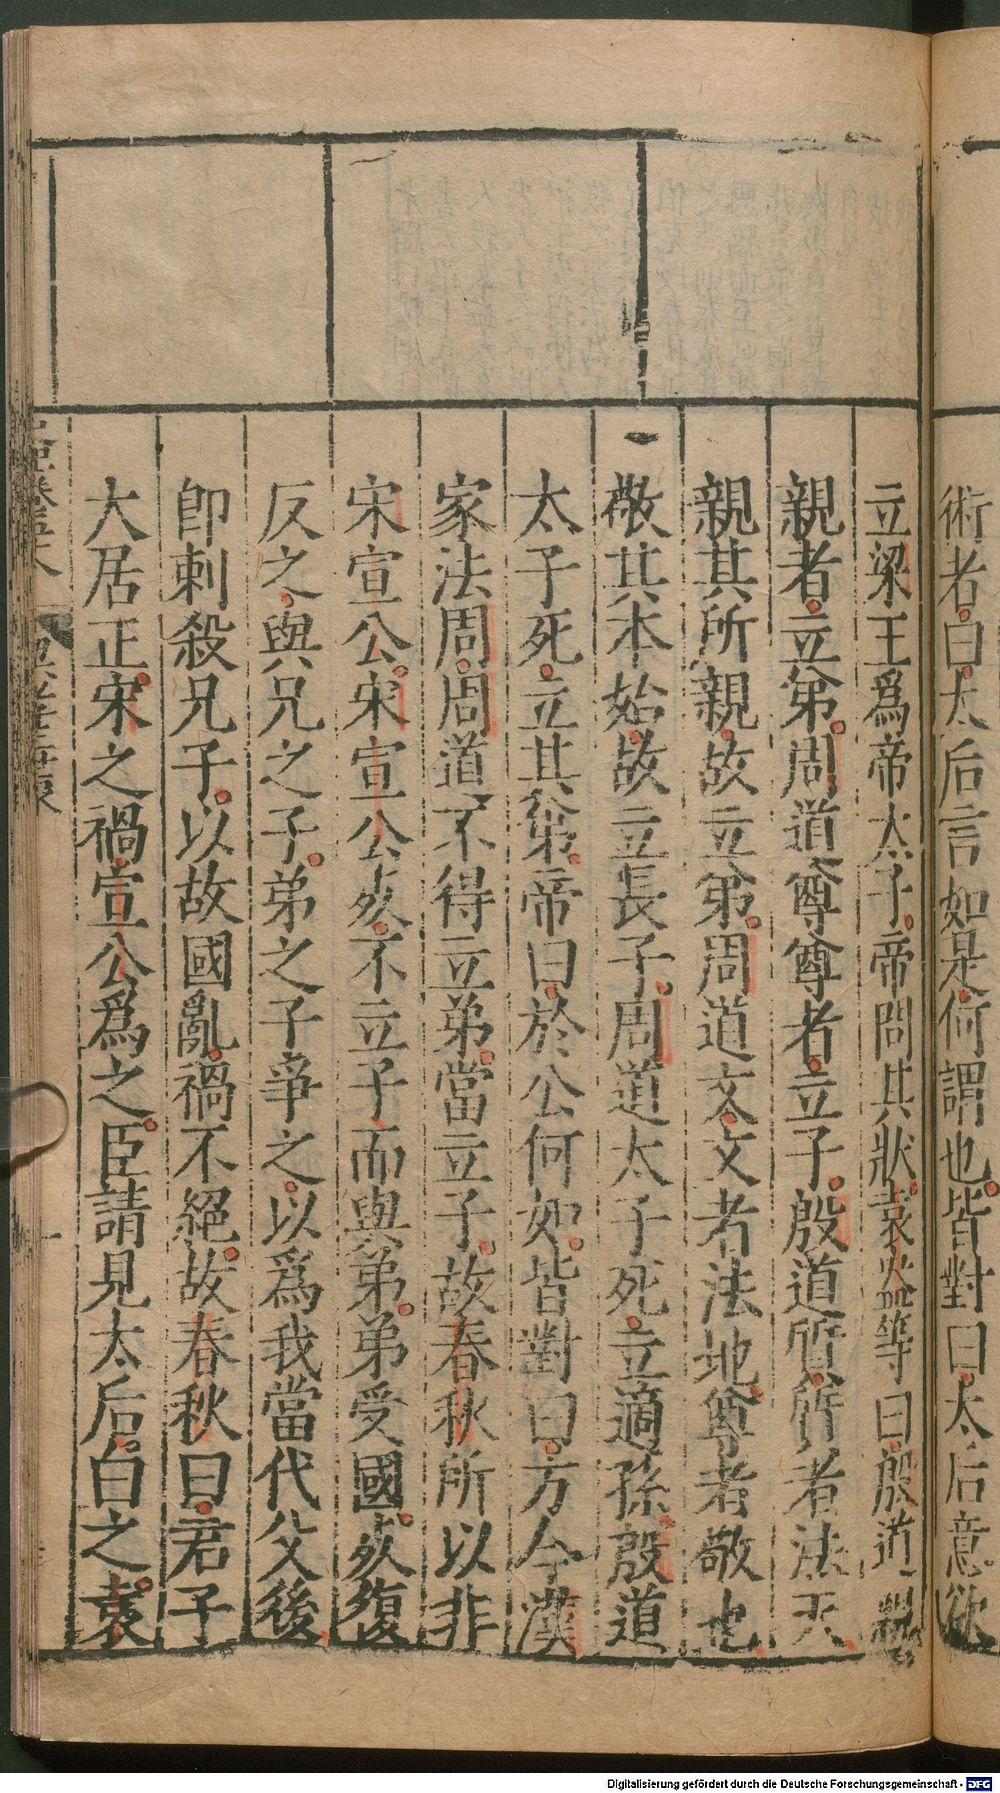 術者曰太后言如是何謂也皆對曰太后意欲
立梁王爲帝太子帝問其狀袁盎等曰殷道親
親者立弟周道尊尊者立子殷道質質者法天
親其所親故立弟周道文文者法地尊者敬也
敬其本始故立長子周道太子死立適孫殷道
太子死立其弟帝曰於公何如皆對曰方今漢
家法周周道不得立弟當立子故春秋所以非
宋宣公宋宣公死不立子而與弟弟受國死復
反之與兄之子弟之子爭之以爲我當代父後
卽刺殺兄子以故國亂禍不絕故春秋曰君子
大居正宋之禍宣公爲之臣請見太后白之袁
卷五十八
梁孝王世家
Digitalisierung gefördert durch die Deutsche Forschungsgemeinschaft - DFG